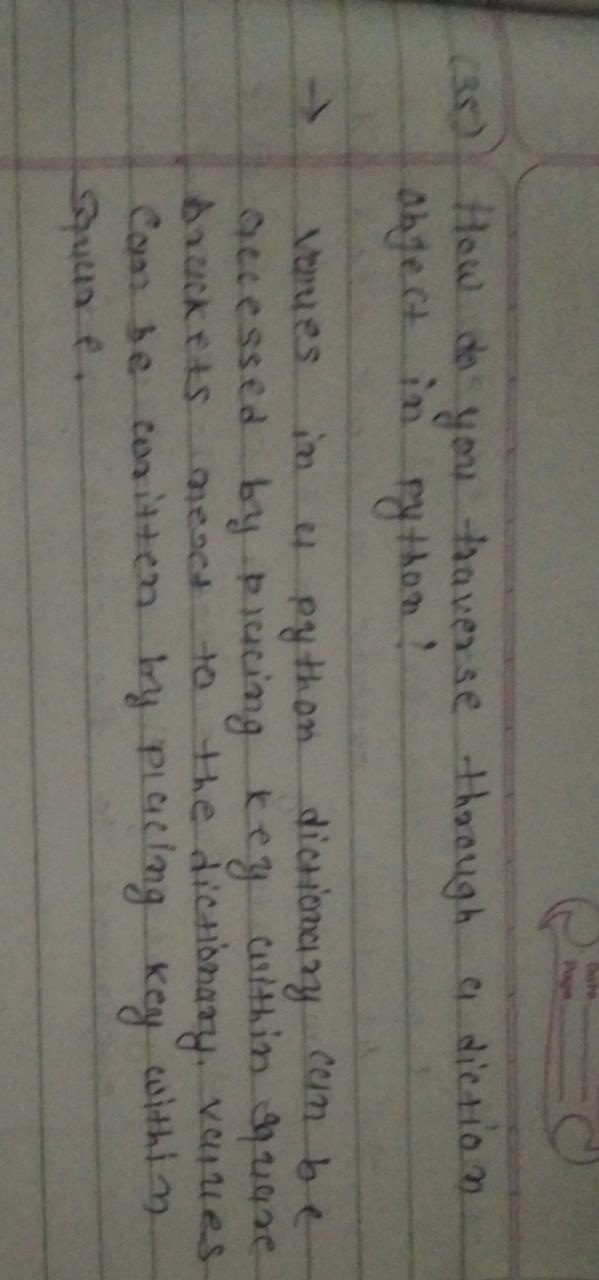 Date
Page
(35) How do you traverse through a diction
object in python?
→ values in a python dictionary can be
accessed by placing key within square
brackets next to the dictionary. values
can be written by placing key within
square.